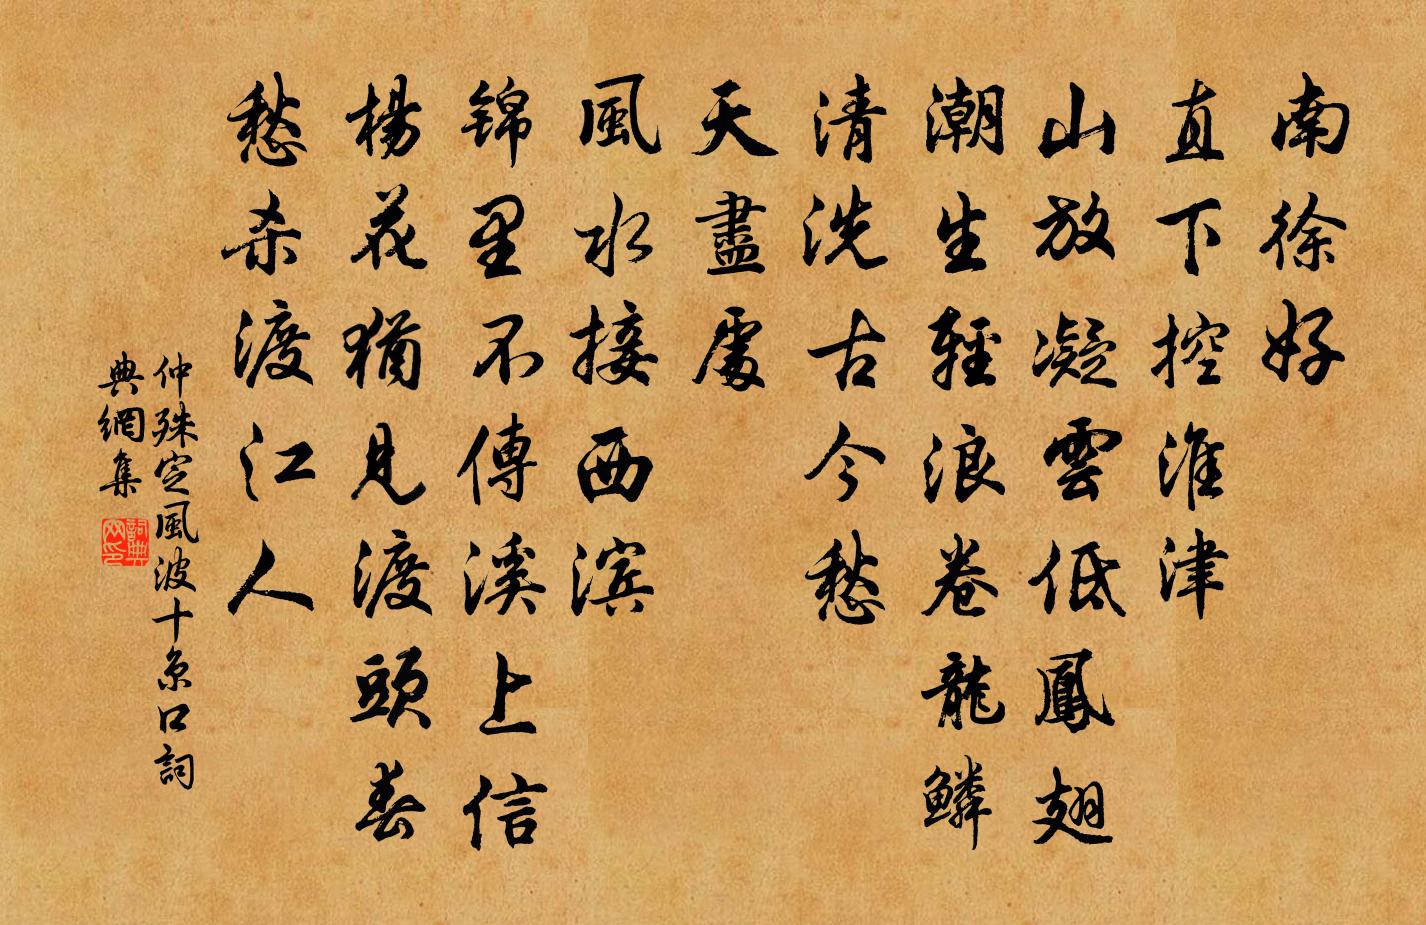 南徐好
直下控淮津
山放凝雲低鳳翅
潮生輕浪卷龍鱗
清洗古今愁
天盡處
風水接西濱
锦里不傳溪上信
楊花猶見渡頭春
愁杀渡江人
仲殊定風波十景口詞
典網集
詞典网印